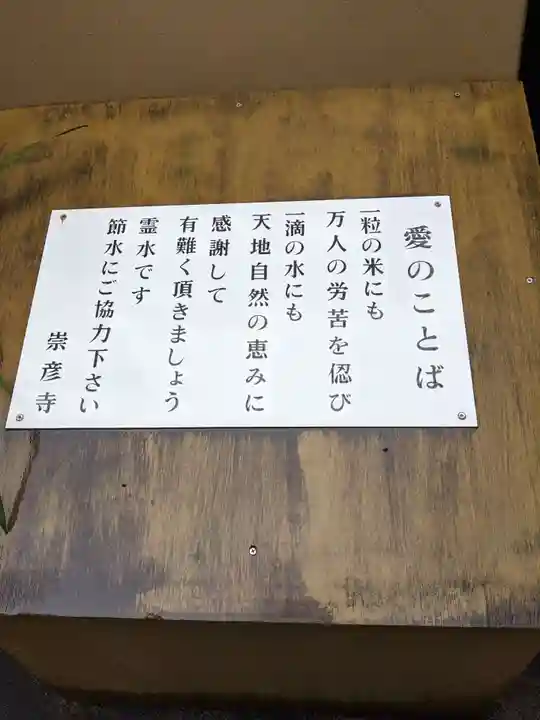 愛のことば
一粒の米にも
万人の労苦を偲び
一滴の水にも
天地自然の恵みに
感謝して
有難く頂きましょう
霊水です
節水にご協力下さい
崇彦寺